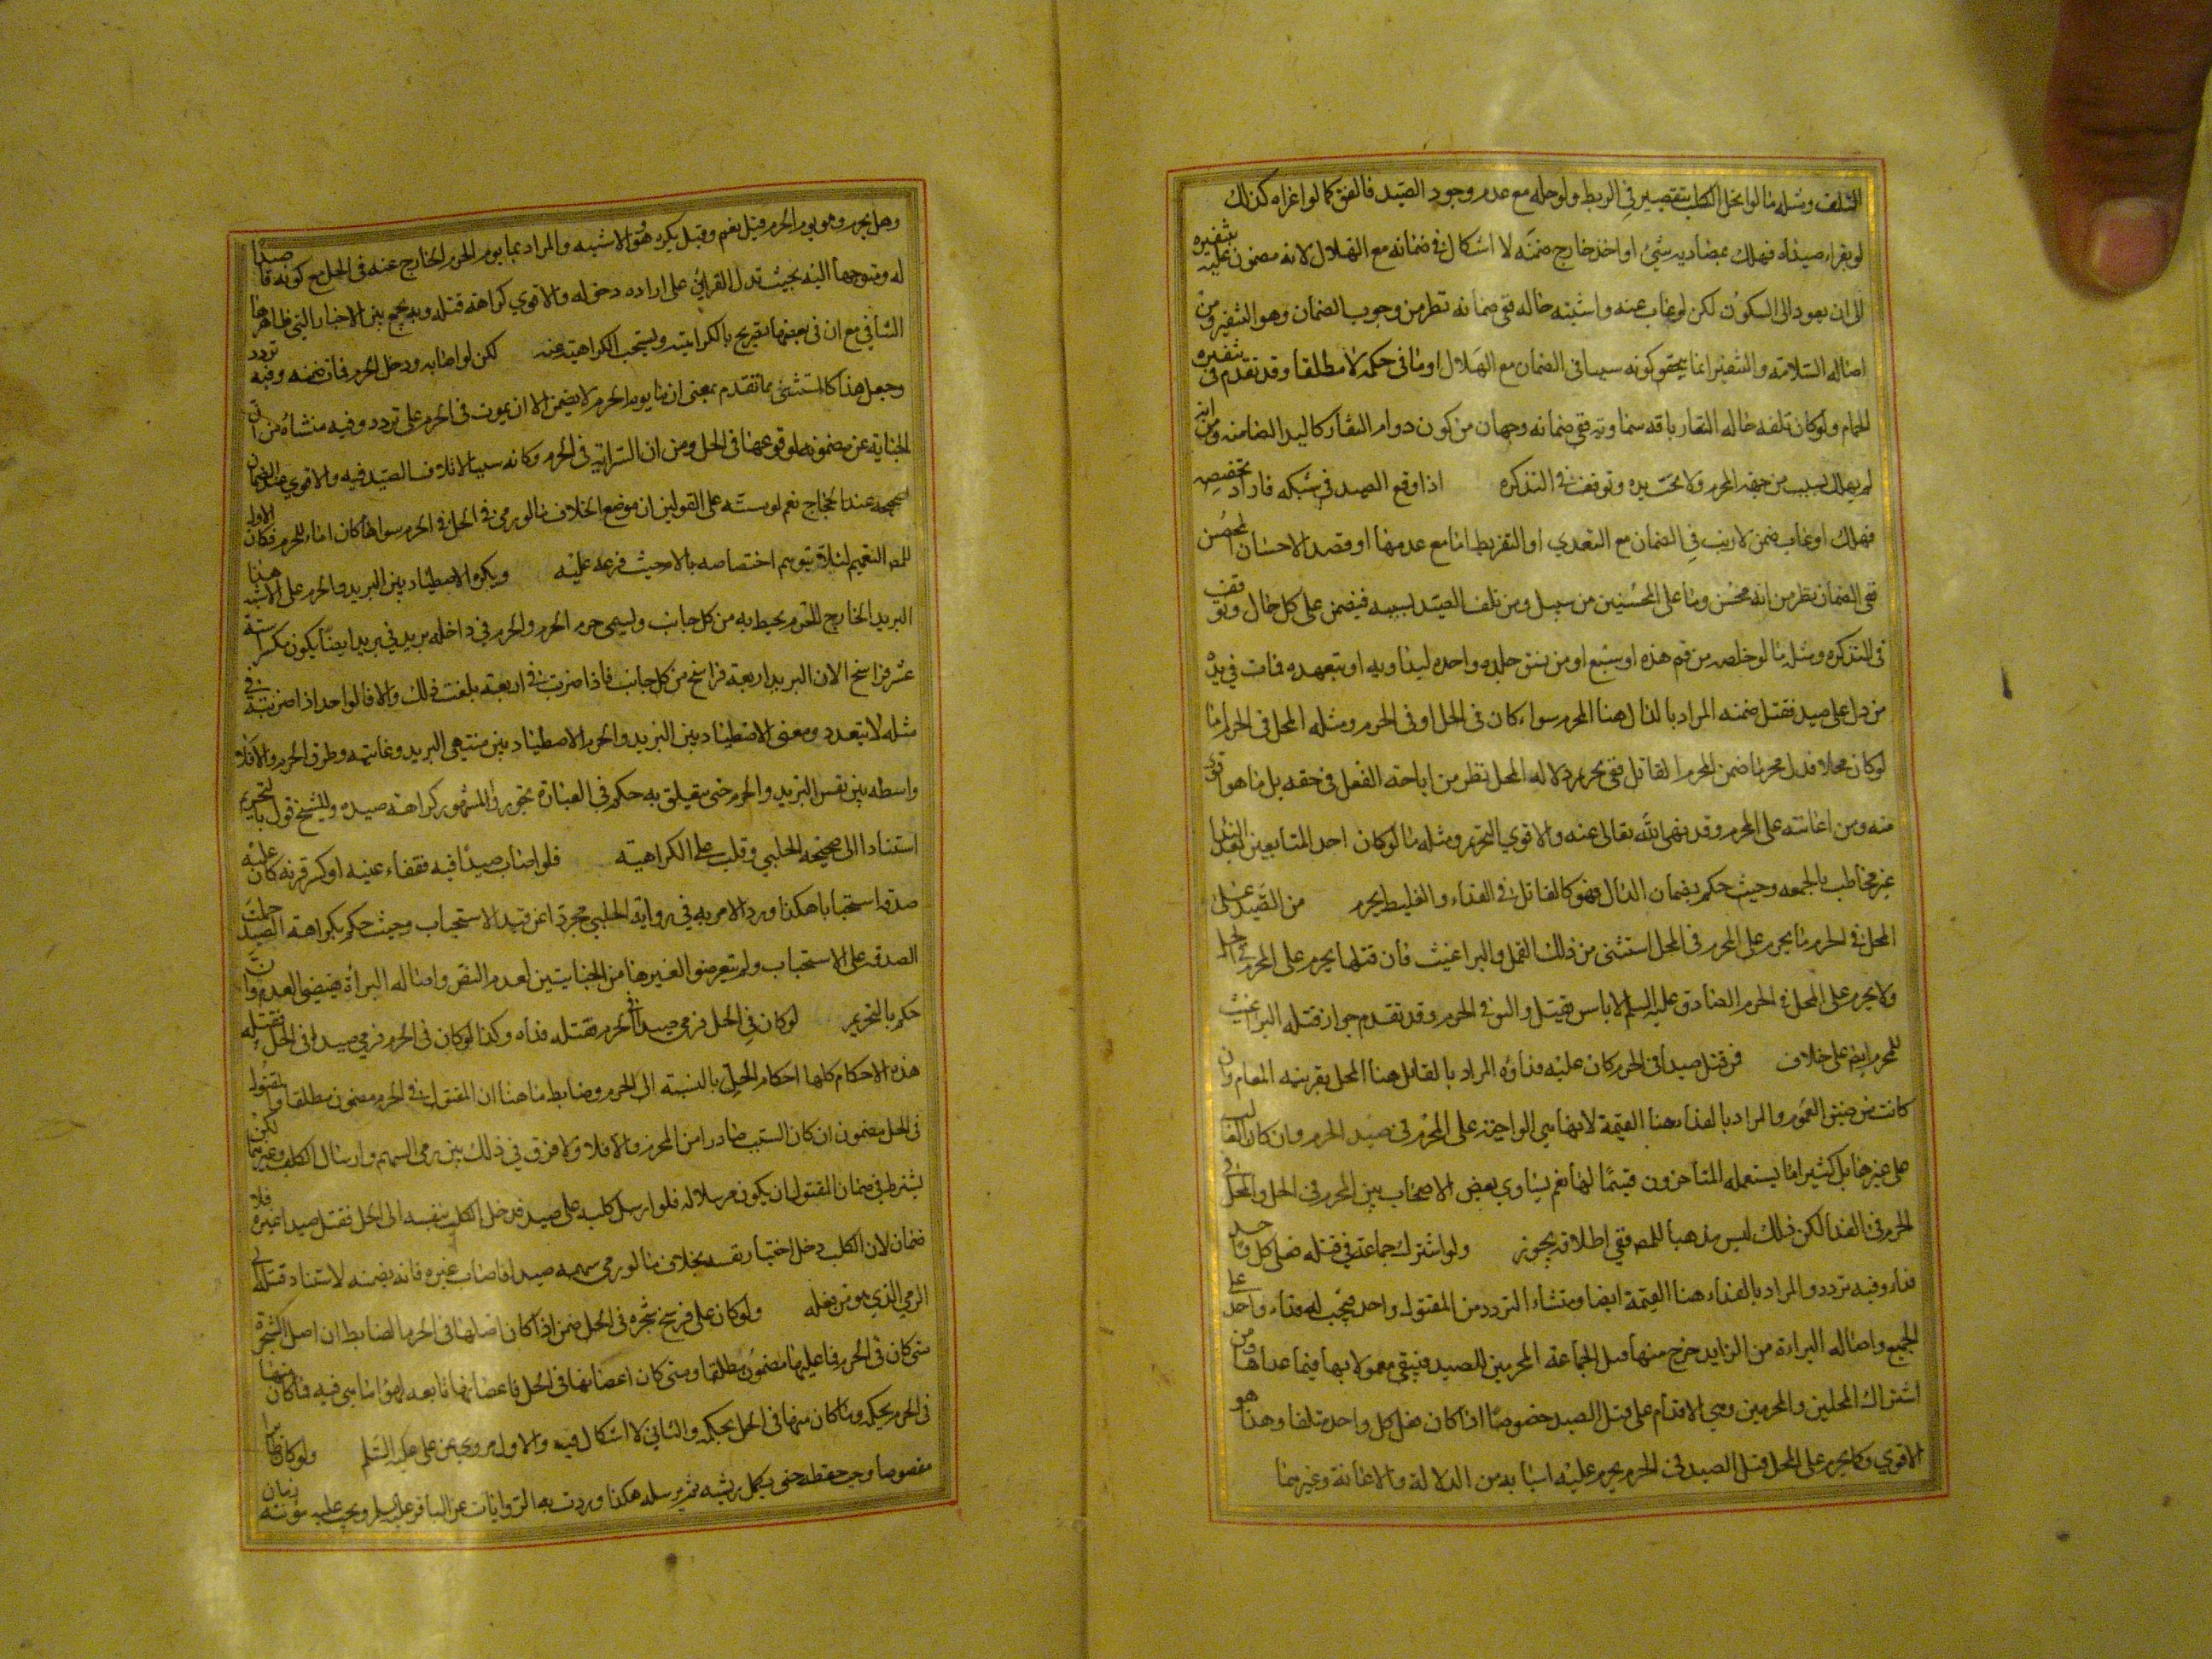 التلف ومثله ما لو انحل الكلب بتقصير في الربط ولو حله مع عدم وجود الصيد فاتفق كما لو اغراه كذلك
لو نفر صيدا فهلك بمصادمه شيء او اخذه خارج ضمنه لا اشكال في ضمانه مع الهلاك لانه مضمون عليه بتنفيره
الى ان يعود الى السكون لكن لو غاب عنه واشتبه حاله ففي ضمانه نظر من وجوب الضمان وهو التنفير ومن
اصاله السلامة والتنفير انما يتحقق كونه سببا في الضمان مع الهلاك او ما في حكمه لا مطلقا وقد تقدم في تنفيره
الحمام ولو كان تلفه حاله النفار بافه سماويه ففي ضمانه وجهان من كون دوام النفار كاليد الضامنه ومن انه
لم يهلك بسبب من جهه المحرم ولا تحت يده وتوقف في التذكره اذا وقع الصيد في شبكه فاراد تخليصه
فهلك او عاب ضمن لا ريب في الضمان مع التعدي او التفريط اما مع عدمهما او قصد الاحسان المحض
ففي الضمان نظر من انه محسن وما على المحسنين من سبيل ومن تلف الصيد بسببه فيضمن على كل حال وتوقف
في التذكره ومثله ما لو خلصه من فم هره او سبع او من شق جدار واخذه ليداويه او يتعهده فمات في يده
من دل على صيد فقتل ضمنه المراد بالدال هنا المحرم سواء كان في الحل او في الحرم ومثله المحل في الحرم اما
لو كان محلا فدل محرما ضمن المحرم القاتل ففي تحريم دلاله المحل نظر من اباحه الفعل في حقه بل ما هو اقوى
منه ومن اعانته على المحرم وقد نهى الله تعالى عنه والاقوى التحريم ومثله ما لو كان احد المتبايعين بعد النداء
غير مخاطب بالجمعه وحيث حكم بضمان الدال فهو كالقاتل في الفداء والغليط يحرم من الصيد على
المحل في الحرم ما يحرم على المحرم في الحل استثنى من ذلك القمل والبراغيث فان قتلها يحرم على المحرم في الحل
ولا يحرم على المحل في الحرم الصادق عليه السلم لا باس بقتل القمل والبق في الحرم وقد تقدم جواز قتله البراغيث
للمحرم ايضا على خلاف فمن قتل صيدا في الحرم كان عليه فداؤه المراد بالقاتل هنا المحل بقرينه المقام وان
كانت من صيغ العموم والمراد بالفداء هنا القيمة لانها هي الواجبه على المحل في صيد الحرم وان كان الغالب
على غيرها بل كثيرا ما يستعمله المتاخرون قيمتا لها نعم يساوي بعض الاصحاب بين المحرم في الحل والمحل في
الحرم في الفداء لكن ذلك ليس مذهبا للمص ففي اطلاقه تجوز ولو اشترك جماعة في قتله فعلى كل واحد
فداء وفيه تردد والمراد بالفداء هنا القيمة ايضا ومنشاء التردد من المقتول واحد فيجب له فداء واحد على
الجميع واصاله البراءة من الزايد خرج منها فعل الجماعة المحرمين للصيد فيبقى معمولا بها فيما عداها ومن
اشتراك المحلين والمحرمين وهي الاقدام على قتل الصيد خصوصا اذا كان فعل كل واحد متلفا وهذا هو
الاقوى وكما يحرم على المحل قتل الصيد في الحرم يحرم عليه اسبابه من الدلالة والاعانة وغيرهما
وهل يحرم وهو يوم الحرم قيل نعم وقيل يكره وهو الاشبه والمراد بما يوم الحرم الخارج عنه في الحل مع كونه قاصدا
له ومتوجها اليه بحيث تدل القرائن على اراده دخوله والاقوى كراهه قتله وبه يجمع بين الاخبار التي ظاهرها
التنافي مع ان في بعضها تصريح بالكراهية ويستحب الكراهية عنه لكن لو اصابه ودخل الحرم فمات ضمنه وفيه تردد
وجعل هذا كالمستثنى مما تقدم بمعنى ان ما يوم الحرم لا يضمن الا ان يموت في الحرم على تردد وفيه منشاه من ان
الجناية غير مضمونه لوقوعها في الحل ومن ان السراية في الحرم وكانه سببا لاتلاف الصيد فيه والاقوى عدم الضمان
لصحيحه عبد الرحمن بن الحجاج نعم لو سته على القولين ان موضع الخلاف ما لو رمى في الحل في الحرم سواء كان اما للحرم فكان الاولى
للمص التعميم لئلا يتوهم اختصاصه بالام حيث فرعه عليه ويكره الاصطياد بين البريد والحرم على الاشبه هذا
البريد الخارج للحرم يحيط به من كل جانب ويسمى حرم الحرم والحرم في داخله بريد في بريد ايضا يكون مكسره ستة
عشر فراسخ لان البريد اربعة فراسخ من كل جانب فاذا ضربت في اربعة بلغت ذلك والا فالواحد اذا ضربته في
مثله لا يتعدد ومعنى الاصطياد بين البريد والحرم الاصطياد بين منتهى البريد وغايته وطرف الحرم والا فلا
واسطه بين نفس البريد والحرم حتى يتعلق به حكم ففي العبارة تجوز والمشهور كراهه صيده وللشيخ قول بالتحريم
استنادا الى صحيحه الحلبي وقلب على الكراهية فلو اصاب صيدا فيه ففقاء عينه او كسر قرنه كان عليه
صدقه استحبابا هكذا ورد الامر به في رواية الحلبي مجردا عن قيد الاستحباب وحيث حكم بكراهة الصيد حملت
الصدقه على الاستحباب ولم يتعرضوا لغيرها من الجنايتين لعدم النص واصاله البراة فيقتضى العدم وان
حكم بالتحريم لو كان في الحل فرمى صيدا في الحرم فقتله فداه وكذا لو كان في الحرم فرمى صيدا في الحل فقتله
هذه الاحكام كلها احكام المحل بالنسبة الى الحرم وضابط ما هنا ان المقتول في الحرم مضمون مطلقا والمقتول
في الحل مضمون ان كان السبب صادرا من الحرم والا فلا ولا فرق في ذلك بين رمى السهم وارسال الكلب وغيرهما لكن
يشترط في ضمان المقتول ان يكون مرسلا له فلو ارسل كلبه على صيد فدخل الكلب بنفسه الى الحل فقتل صيدا غيره فلا
ضمان لان الكلب دخل اختيار نفسه بخلاف ما لو رمى سهمه صيدا فاصاب غيره فانه يضمنه لاستناد قتله الى
الرمي الذي هو من فعله ولو كان على فرع شجره في الحل ضمن اذا كان اصلها في الحرم الضابط ان اصل الشجرة
متى كان في الحرم فما عليها مضمون مطلقا ومتى كان اعضانها في الحل فاعضانها تابعه لهوا ما هي فيه فما كان منها
في الحرم بحكمه وما كان منها في الحل بحكمه والثاني لا اشكال فيه والاول مروي عن علي عليه السلم ولو كان طايرا
مقصوصا وجب حفظه حتى يكمل ريشه ثم يرسله هكذا وردت به الروايات عن الباقر عليه السلم ويجب عليه مؤنته زمان